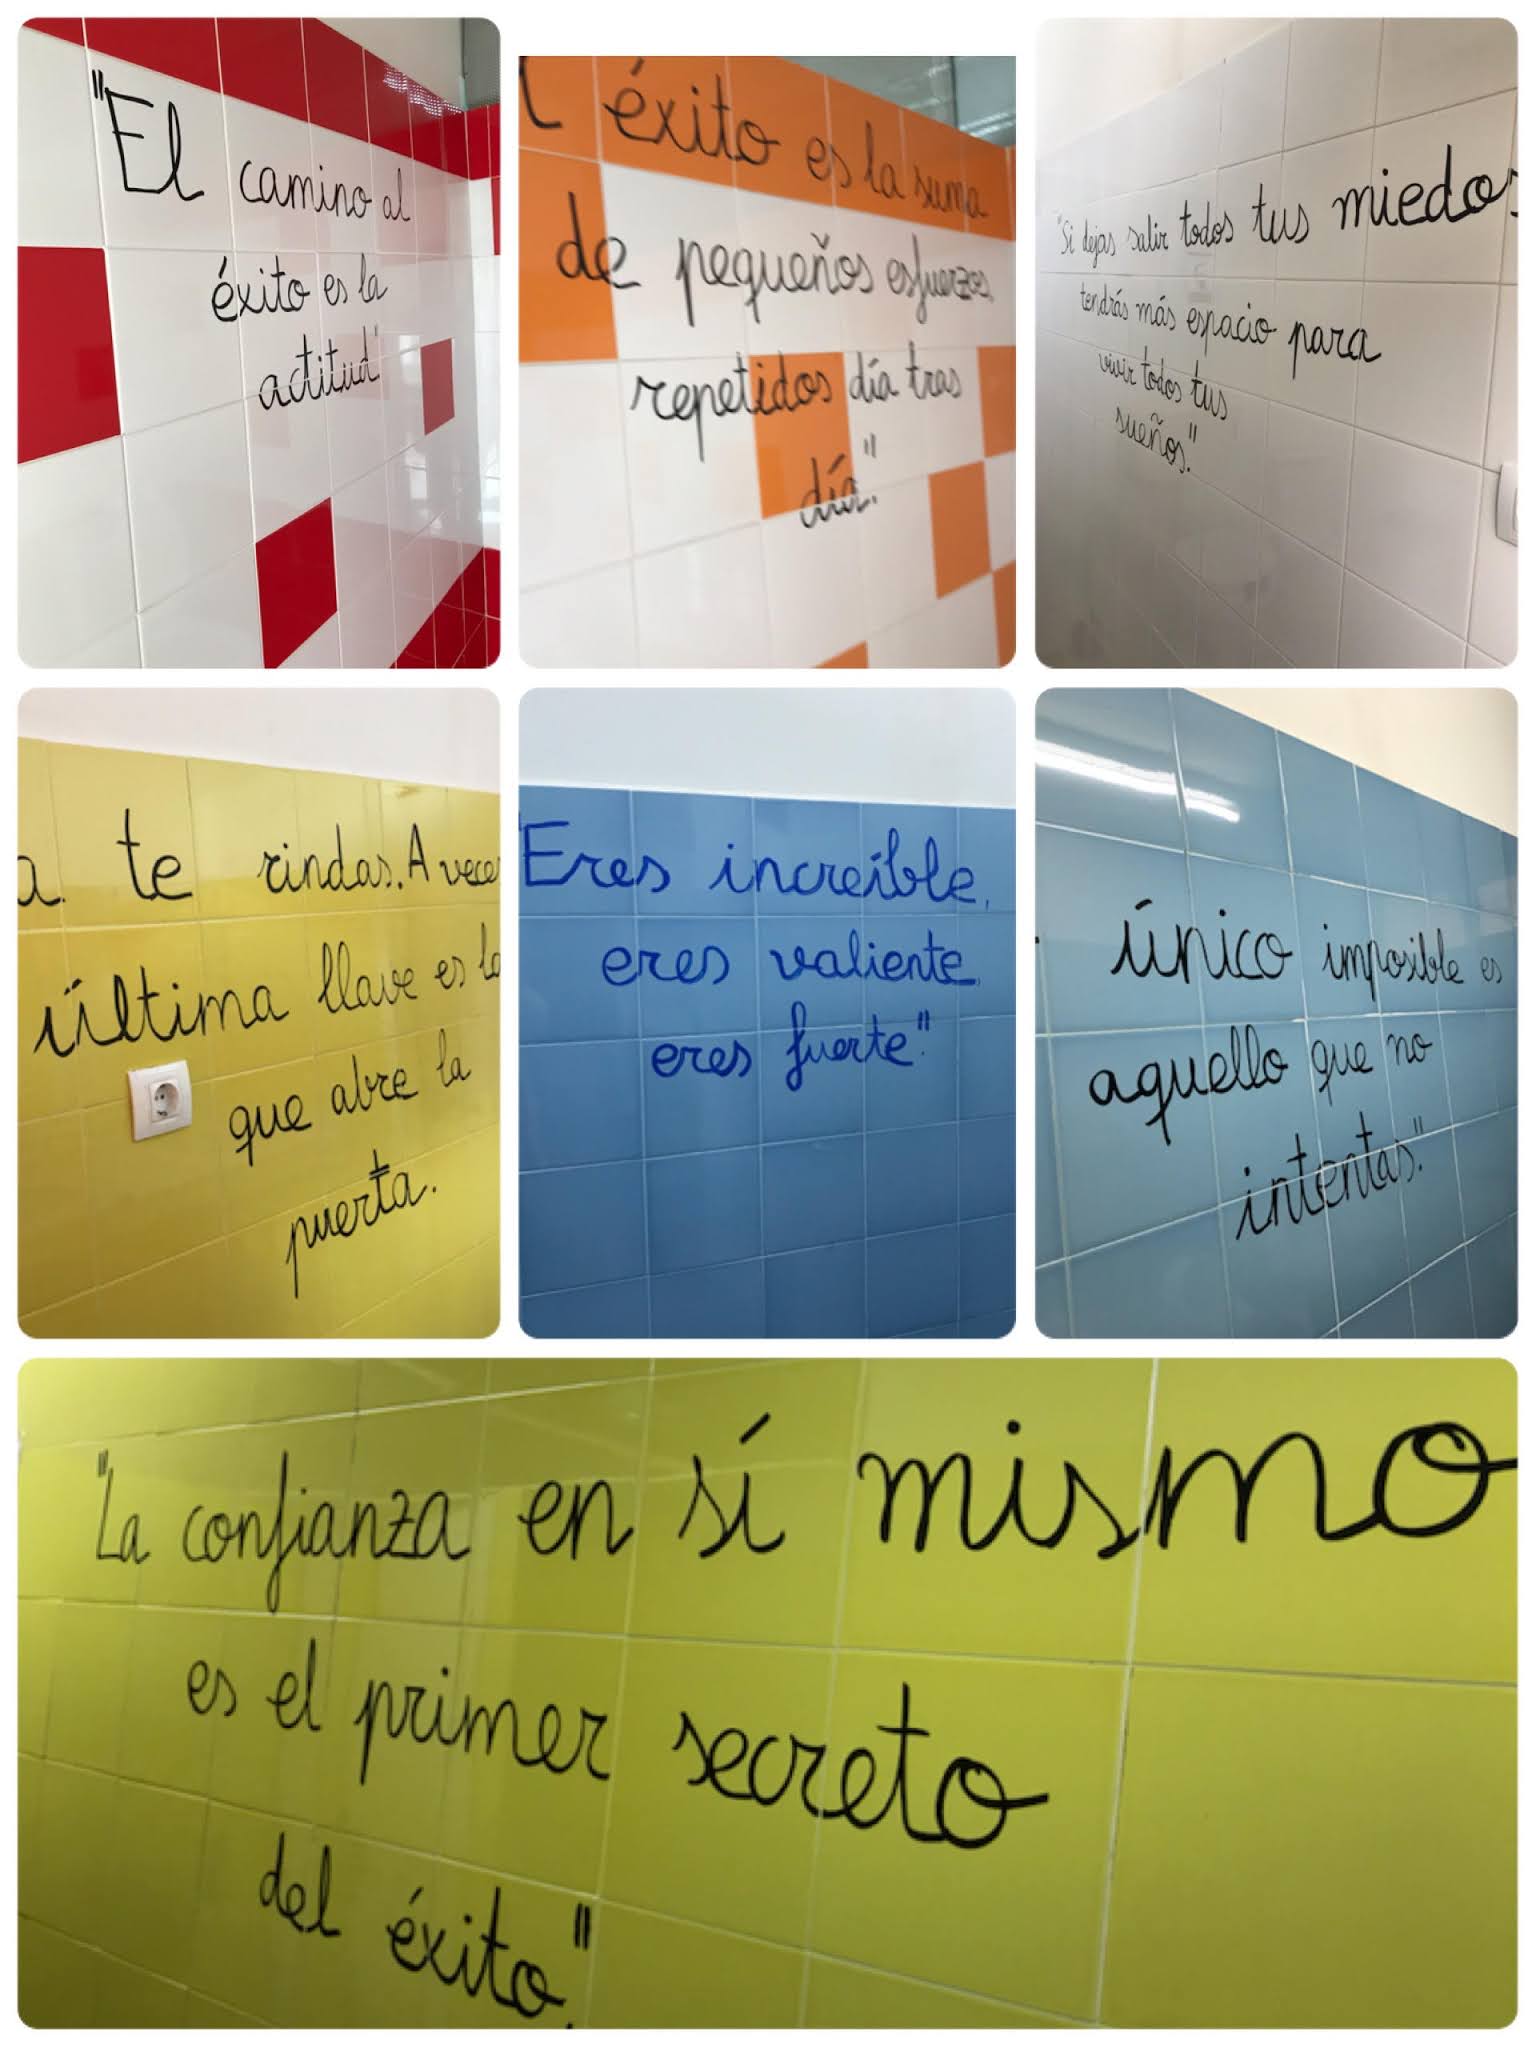 "El camino al
éxito es la
actitud"
l éxito es la suma
de pequeños esfuerzos,
repetidos día tras
día."
"Si dejas salir todos tus miedos
tendrás más espacio para
vivir todos tus
sueños."
a te rindas. A vece
última llave es la
que abre la
puerta.
"Eres increíble,
eres valiente,
eres fuerte"
único imposible es
aquello que no
intentas."
"La confianza en sí mismo
es el primer secreto
del éxito."